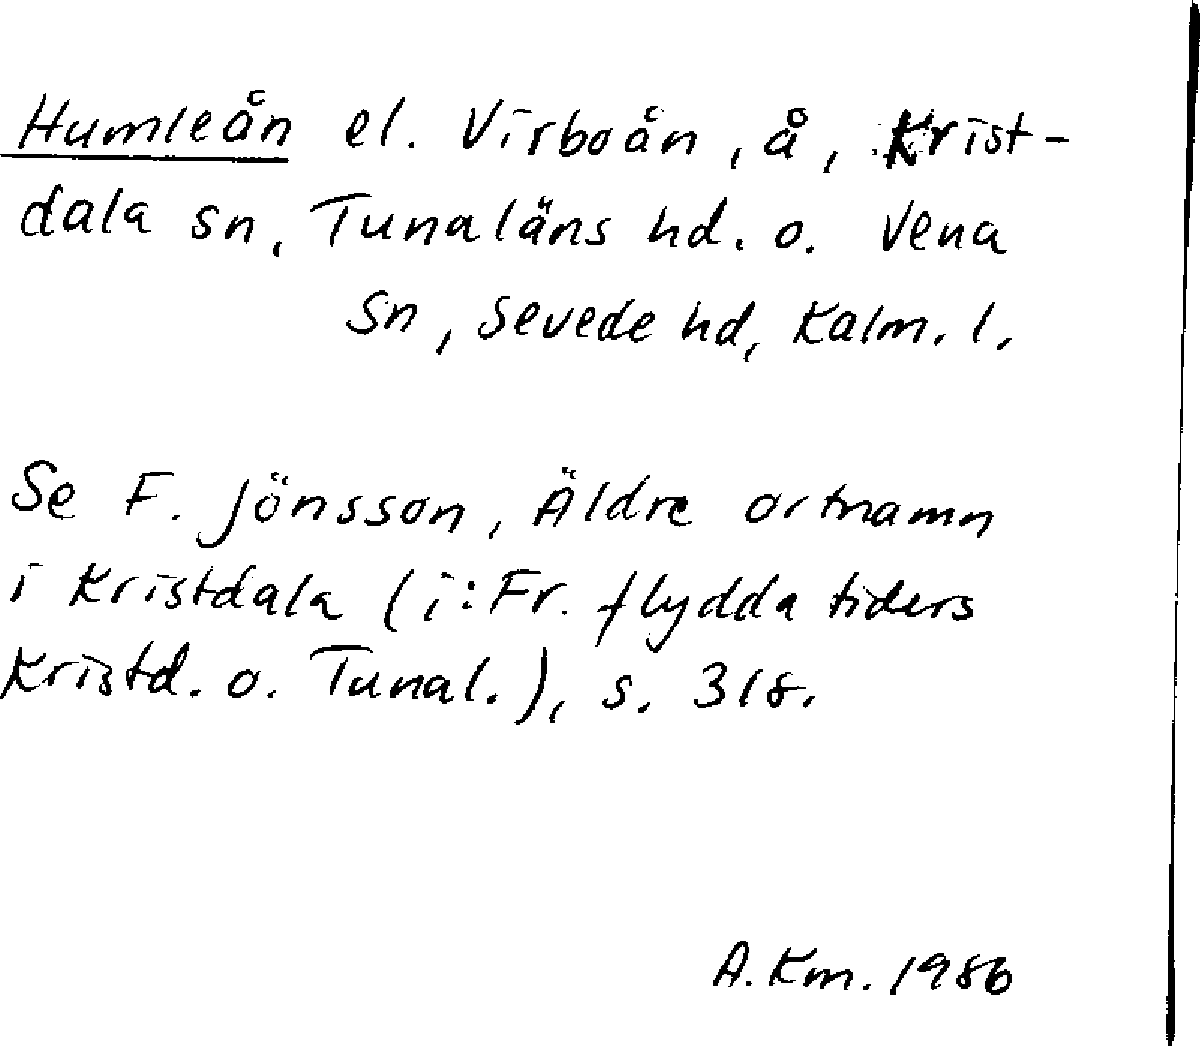 Humleån el. Virboån, å, Krist-
dala sn, Tunaläns hd. o. Vena
sn, Sevede hd, Kalm. l.
Se F. Jönsson, Äldre ortnamn
i Kristdala (i: Fr. flydda tiders
Kristd. o. Tunal.), s. 318.
A. Km. 1986